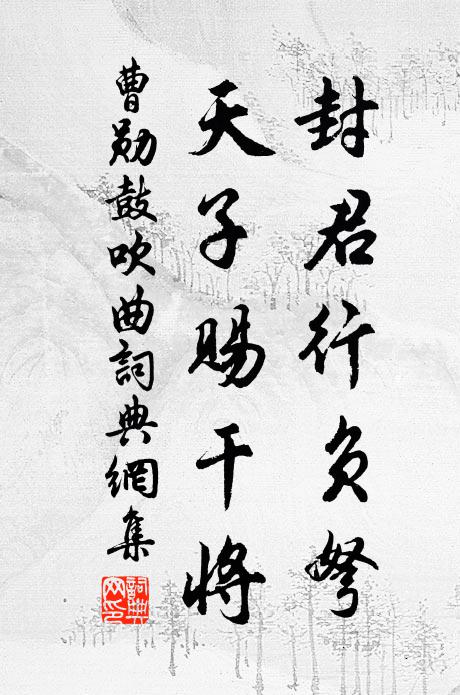 封君行負弩
天子賜干將
曹勛鼓吹曲詞典網集
詞典網印